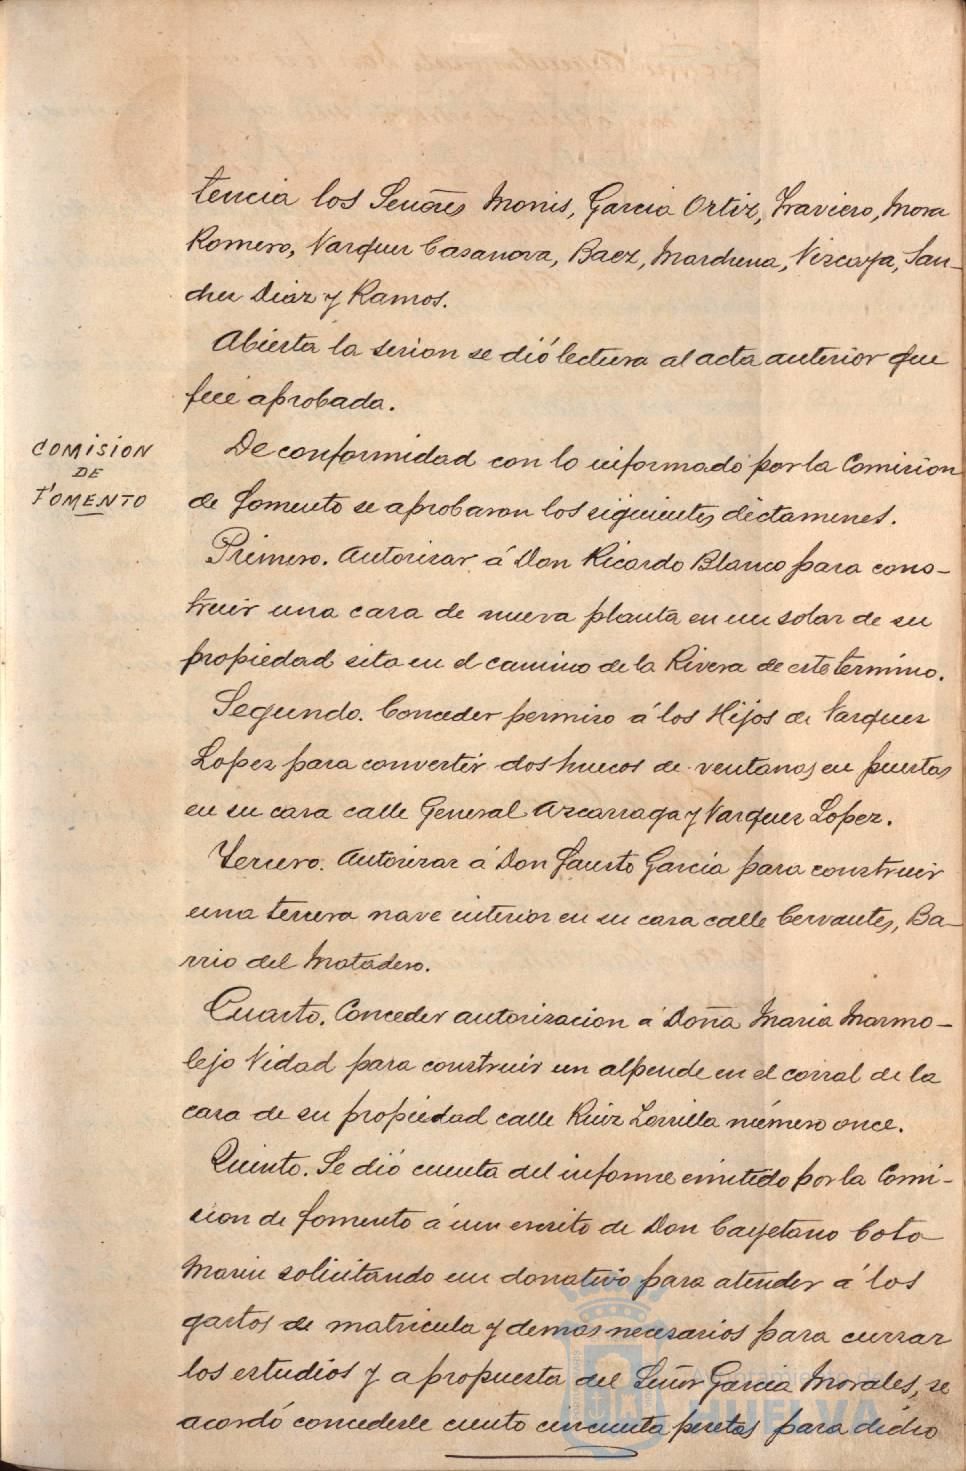 tencia los Señores Monis, Garcia Ortiz, Traviero, Mora
Romero, Vazquez Casanova, Baez, Marchena, Vizcaya, San-
chez Diaz y Ramos.
Abierta la sesion se dió lectura al acta anterior que
fué aprobada.
COMISION
DE
FOMENTO
De conformidad con lo informado por la Comision
de Fomento se aprobaron los siguientes dictamenes.
Primero. Autorizar á Don Ricardo Blanco para cons-
truir una casa de nueva planta en un solar de su
propiedad sita en el camino de la Rivera de este termino.
Segundo. Conceder permiso á los Hijos de Vazquez
Lopez para convertir dos huecos de ventanas en puertas
en su casa calle General Azcarraga y Vazquez Lopez.
Tercero. Autorizar á Don Fausto Garcia para construir
una tercera nave interior en su casa calle Cervantes, Ba-
rrio del Matadero.
Cuarto. Conceder autorizacion á Doña Maria Marmo-
lejo Vidad para construir un alpende en el corral de la
casa de su propiedad calle Ruiz Zorrilla número once.
Quinto. Se dió cuenta del informe emitido por la Comi-
sion de Fomento á un escrito de Don Cayetano Coto
Marin solicitando un donativo para atender á los
gastos de matricula y demas necesarios para cursar
los estudios y a propuesta del Señor Garcia Morales, se
acordó concederle ciento cincuenta pesetas para dicho
Ayuntamiento de
HUELVA